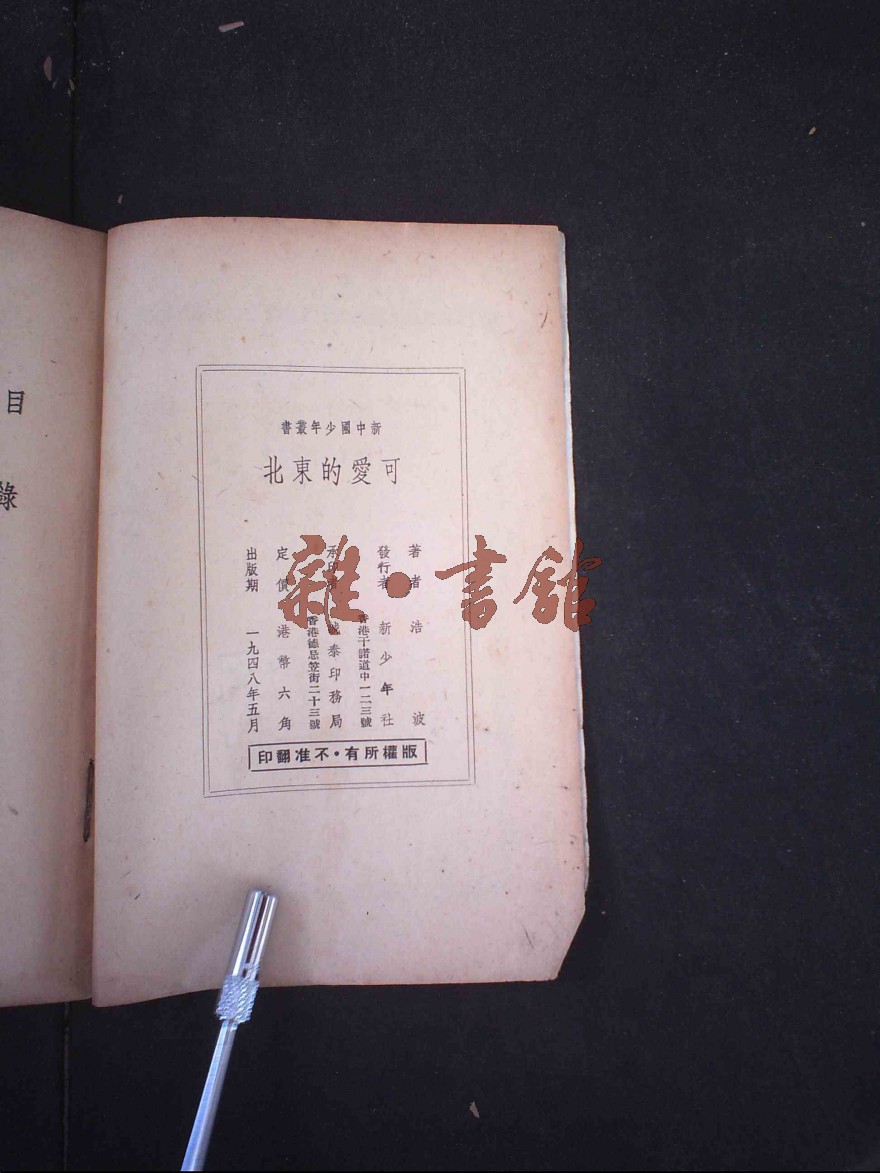 新中國少年叢書
可愛的東北
著者 浩波
發行者 新少年社
香港干諾道中一二三號
承印者 誠泰印務局
香港德忌笠街二十三號
定價 港幣六角
出版期 一九四八年五月
版權所有•不准翻印
目錄
雜•書館